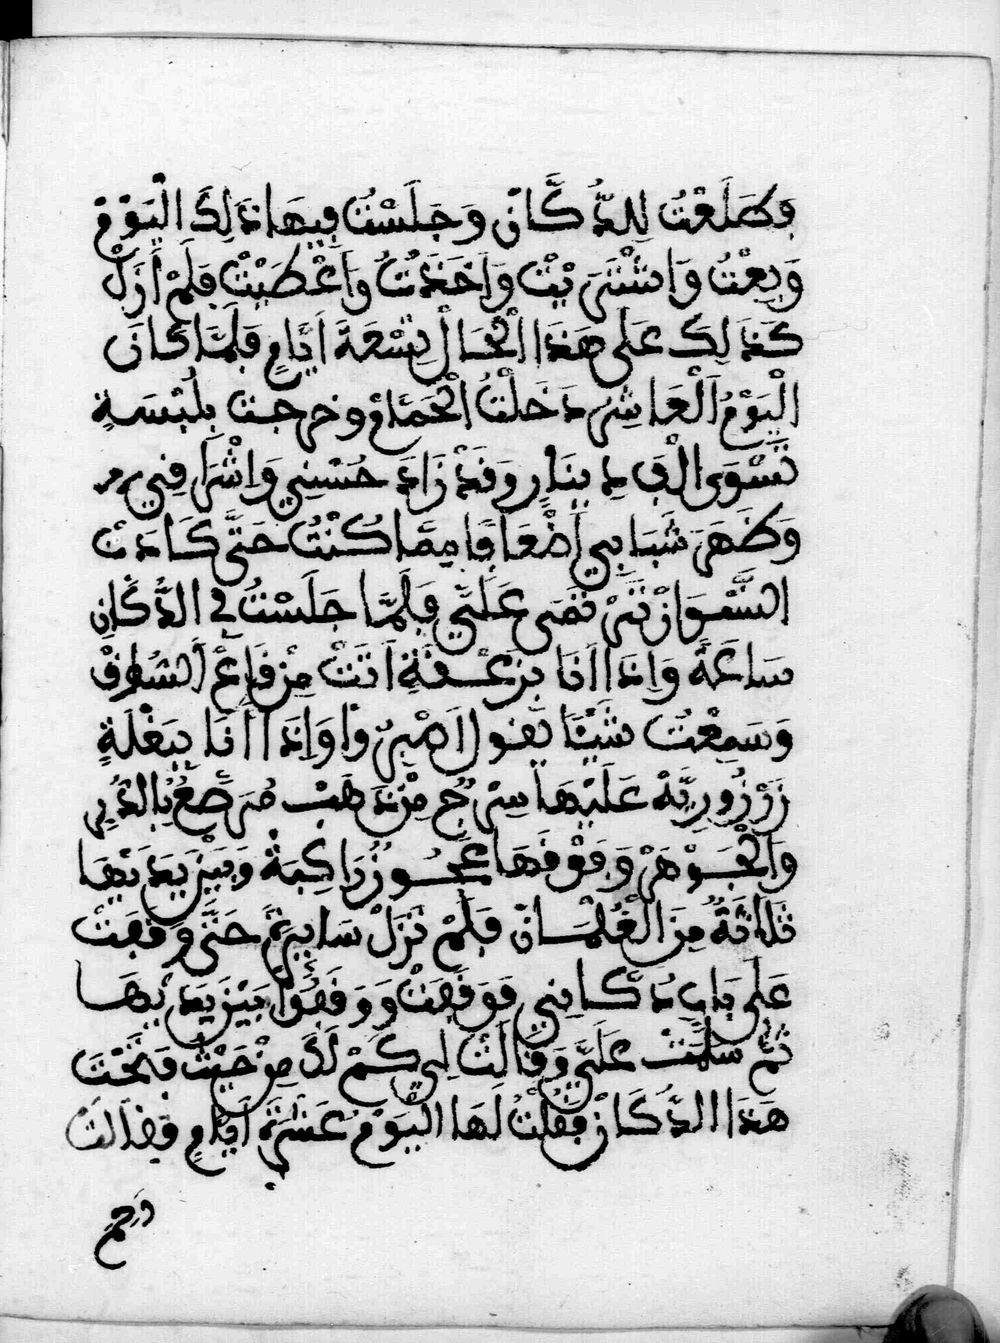 وطَلَعْتُ لِلدُّكَّانْ وَجَلَسْتُ فِيهَا ذٰلِكَ الْيَوْمْ
وَبِعْتُ وَاشْتَرَيْتْ وَاَخَذْتُ وَاَعْطَيْتْ فَلَمْ اَزَلْ
كَذَلِكَ عَلَى هَذَا الْحَالْ تِسْعَةَ اَيَّامٍ فَلَمَّا كَانَ
الْيَوْمُ اَلْعَاشِرْ دَخَلْتُ الْحَمَّامْ وخرجت بِلُبْسَةٍ
تَسْوَى اَلْف دِينَارٍ وَقَدْ زَادَ حُسْنِي وَاَشْرَاقِي
وَظَهَرَ شَبَابِي اَضْعَافًا مِمَّا كُنْتُ حَتَّى كَادَتْ
النِّسْوَانْ تَتَرَمَى عَلَيَّ فَلَمَّا جَلَسْتُ فِي الدُّكَّانِ
سَاعَةً وَاِذَا اَنَا بِزَعْقَةٍ اَتَتْ مِنْ قَاعِ السُّوقْ
وَسَمِعْتُ شَيْئًا يَقُولْ اَمِيرْ وَا وَاِذَا اَنَا بِبَغْلَةٍ
زَرْزُورِيَّةْ عَلَيْهَا سِرْجٌ مِنْ ذَهَبْ مُرَصَّعْ بِالدُّرِ
وَالْجَوْهَرْ وَفَوْقَهَا عَجُوزْ رَاكِبَةْ وَبَيْنَ يَدَيْهَا
ثَلَاثَةٌ مِنَ الْغُلْمَانْ فَلَمْ تَزَلْ سَايِرَةً حَتَّى وَقَفَتْ
عَلَى بَابِ دُكَّانِي فَوَقَفَتْ وَوَقَفُوْا بَيْنَ يَدَيْهَا
ثُمَّ سَلَّمَتْ عَلَيَّ وَقَالَتْ لِي كَمْ لَكَ مِنْ حَيْثُ فَتَحْتَ
هَذَا الدُّكَّانْ فَقُلْتُ لَهَا الْيَوْمْ عَشَرَةُ اَيَّامٍ فَقَالَتْ